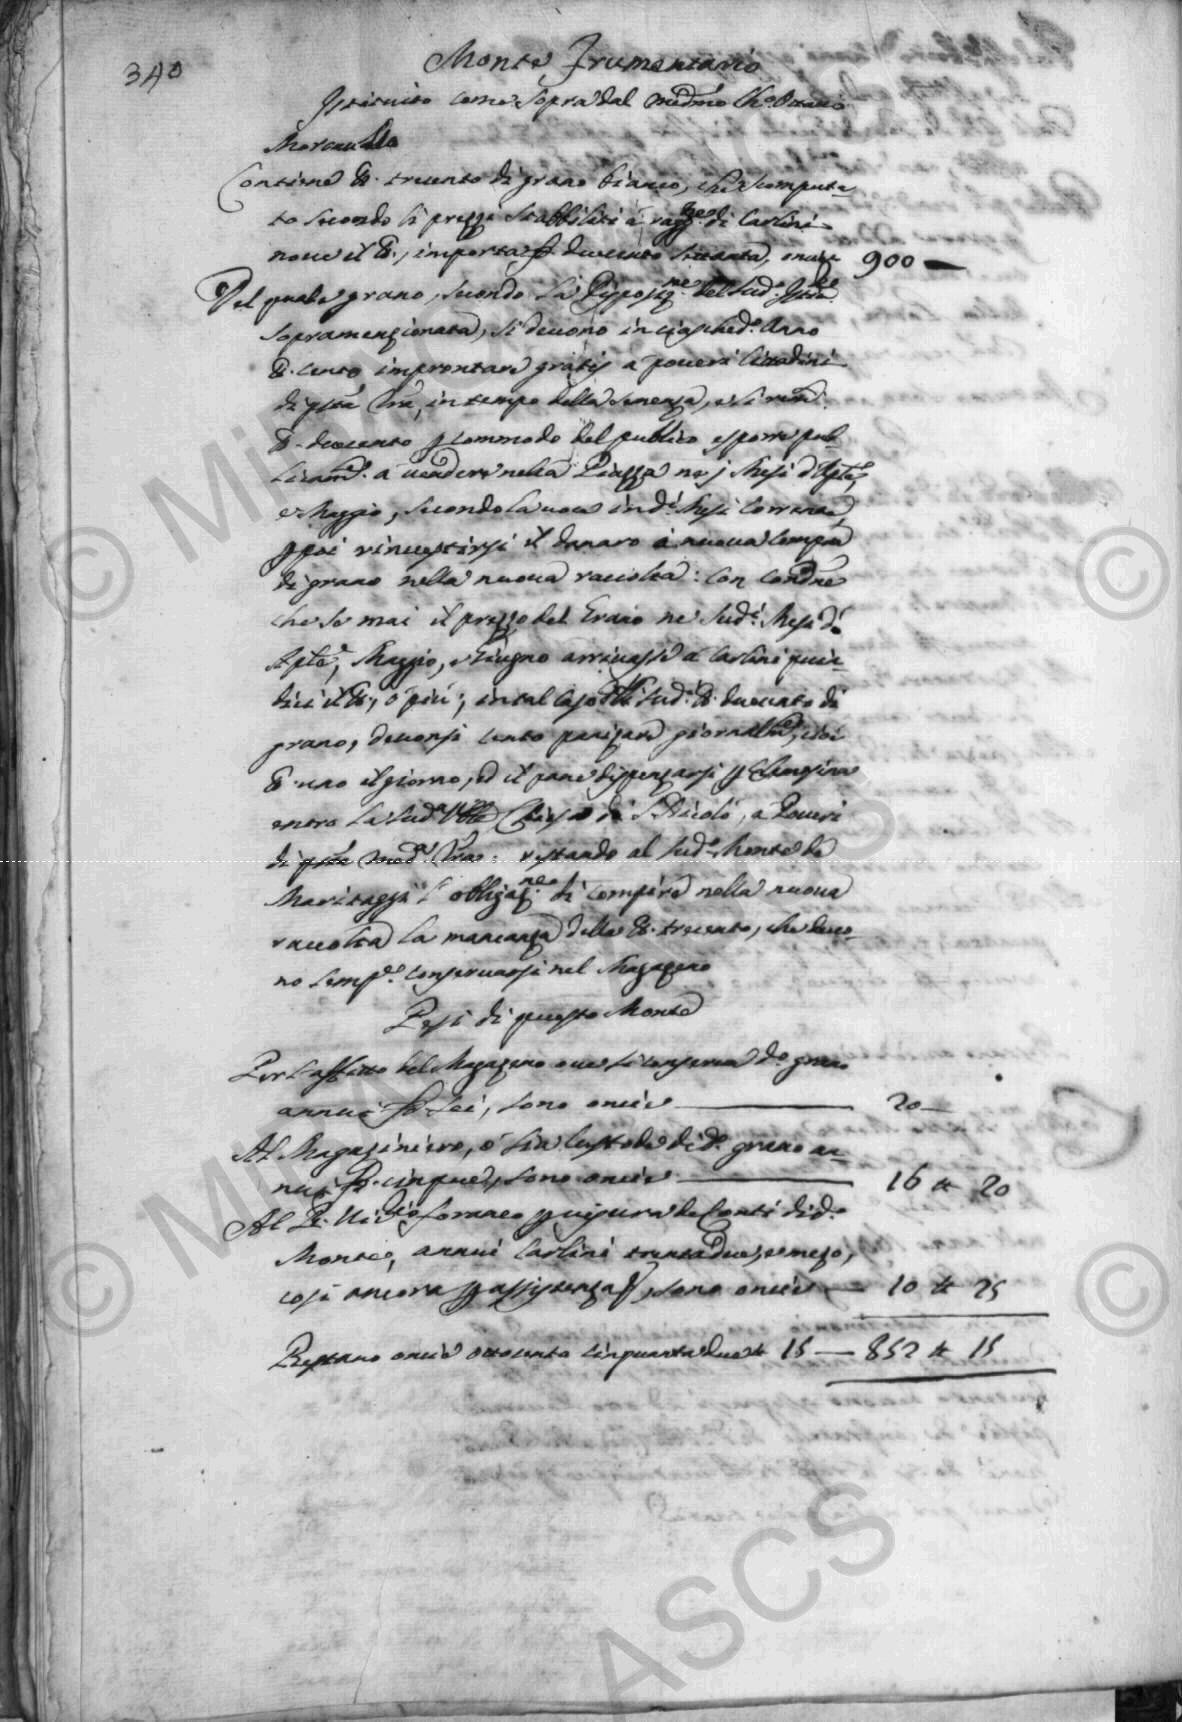 340
Monte Frumentario
Istituito come sopra dal medmo Chco Ottavio
Contiene tt. trecento di grano bianco, che computa-
to secondo li prezzi stabbiliti à ragne di Carlini
nove il tt., importa duecento settanta, oncie 900
Del quale grano, secondo la Disposizne del sud.º
sopramenzionata, si devono in ciasched.º Anno
tt. cento improntare gratis a poveri Cittadini
di qsta Trã, in tempo della semenza, e li rim.
tt. duecento p commodo del publico esporre pub-
licamte. a vendere nella Piazza ne i Mesi d'Aple,
e Maggio, secondo la voce in d.i Mesi corrente,
p poi rinvestirsi il danaro a nuova compra
di grano nella nuova raccolta: Con condne
che se mai il prezzo del Grano ne sud.i Mesi di
Aple, Maggio, e Giugno arrivasse a Carlini quin-
dici il tt., ò più; in tal caso delli sud.i tt. duecento di
grano, devonsi cento panizare giornalmte, cioè
tt. uno il giorno, ed il pane dispenzarsi p elemosina
entro la sud.a Chiesa di S. Nicolò, a Poveri
di qsta med.a Trã: restando al sud.º Monte de
Maritaggi l'obligazne di compire nella nuova
raccolta la mancanza delle tt. trecento, che devo-
no sempre conservarsi nel Magazeno
Pesi di questo Monte
Per l'affitto del Magazeno ove si conserva d.º grano
annui sei, sono oncie 20
Al Magaziniero, ò sia Custode di d.º grano an-
nui cinque, sono oncie 16 tt 20
Al Rd. Vicº foraneo p visura de Conti di d.º
Monte, annui Carlini trentadue, e mezo,
così ancora p assistenza, sono oncie 10 tt 25
Restano oncie ottocento cinquanta due tt 15 — 852 tt 15
© MiBAC ASCS
© MiBAC ASCS